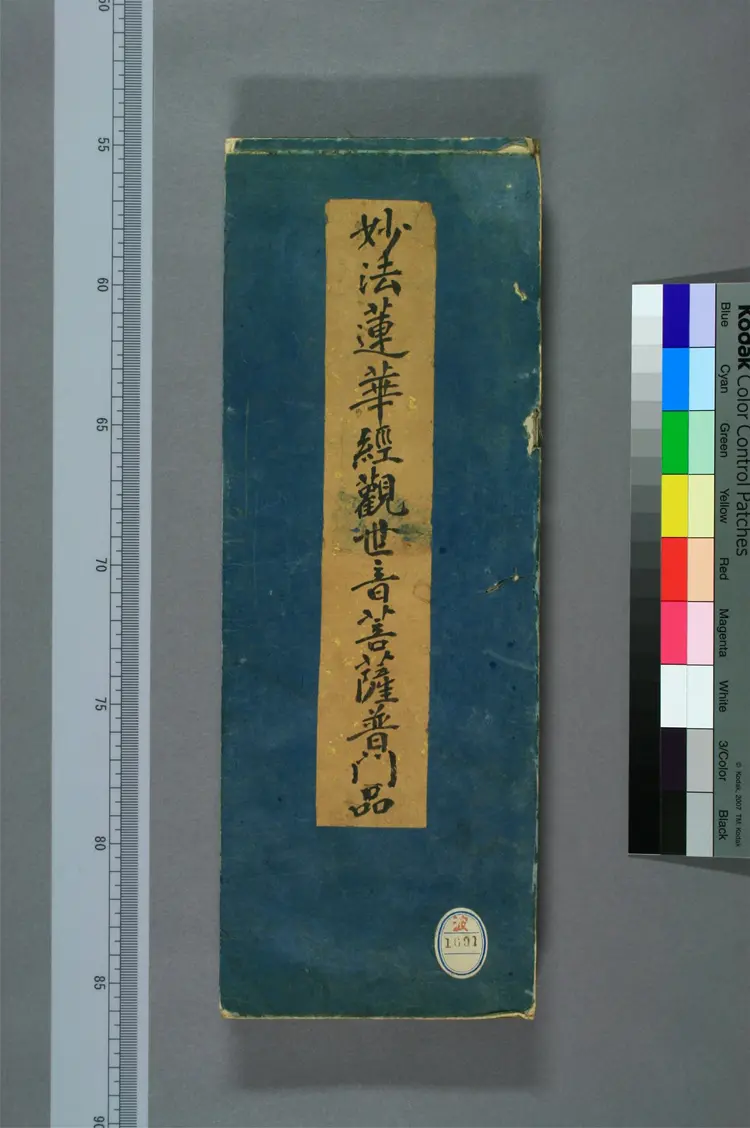 妙法蓮華經觀世音菩薩普门品
波
1691
50
55
60
65
70
75
80
85
90
Kodak Color Control Patches
Blue
Cyan
Green
Yellow
Red
Magenta
White
3/Color
Black
© Kodak, 2007 TM: Kodak